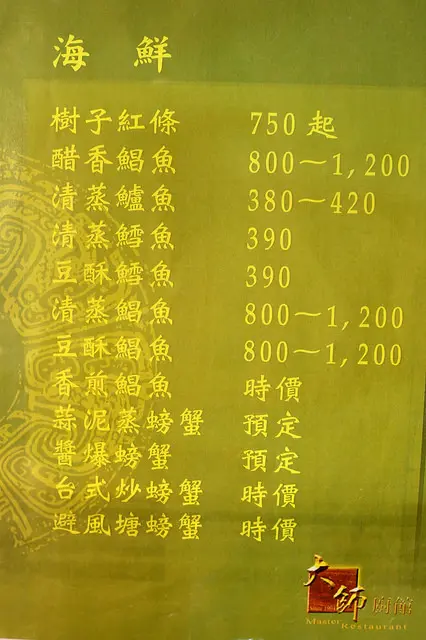 海鮮
樹子紅條 750起
醋香鯧魚 800～1,200
清蒸鱸魚 380～420
清蒸鱈魚 390
豆酥鱈魚 390
清蒸鯧魚 800～1,200
豆酥鯧魚 800～1,200
香煎鯧魚 時價
蒜泥蒸螃蟹 預定
醬爆螃蟹 預定
台式炒螃蟹 時價
避風塘螃蟹 時價
大師廚館
Master Restaurant